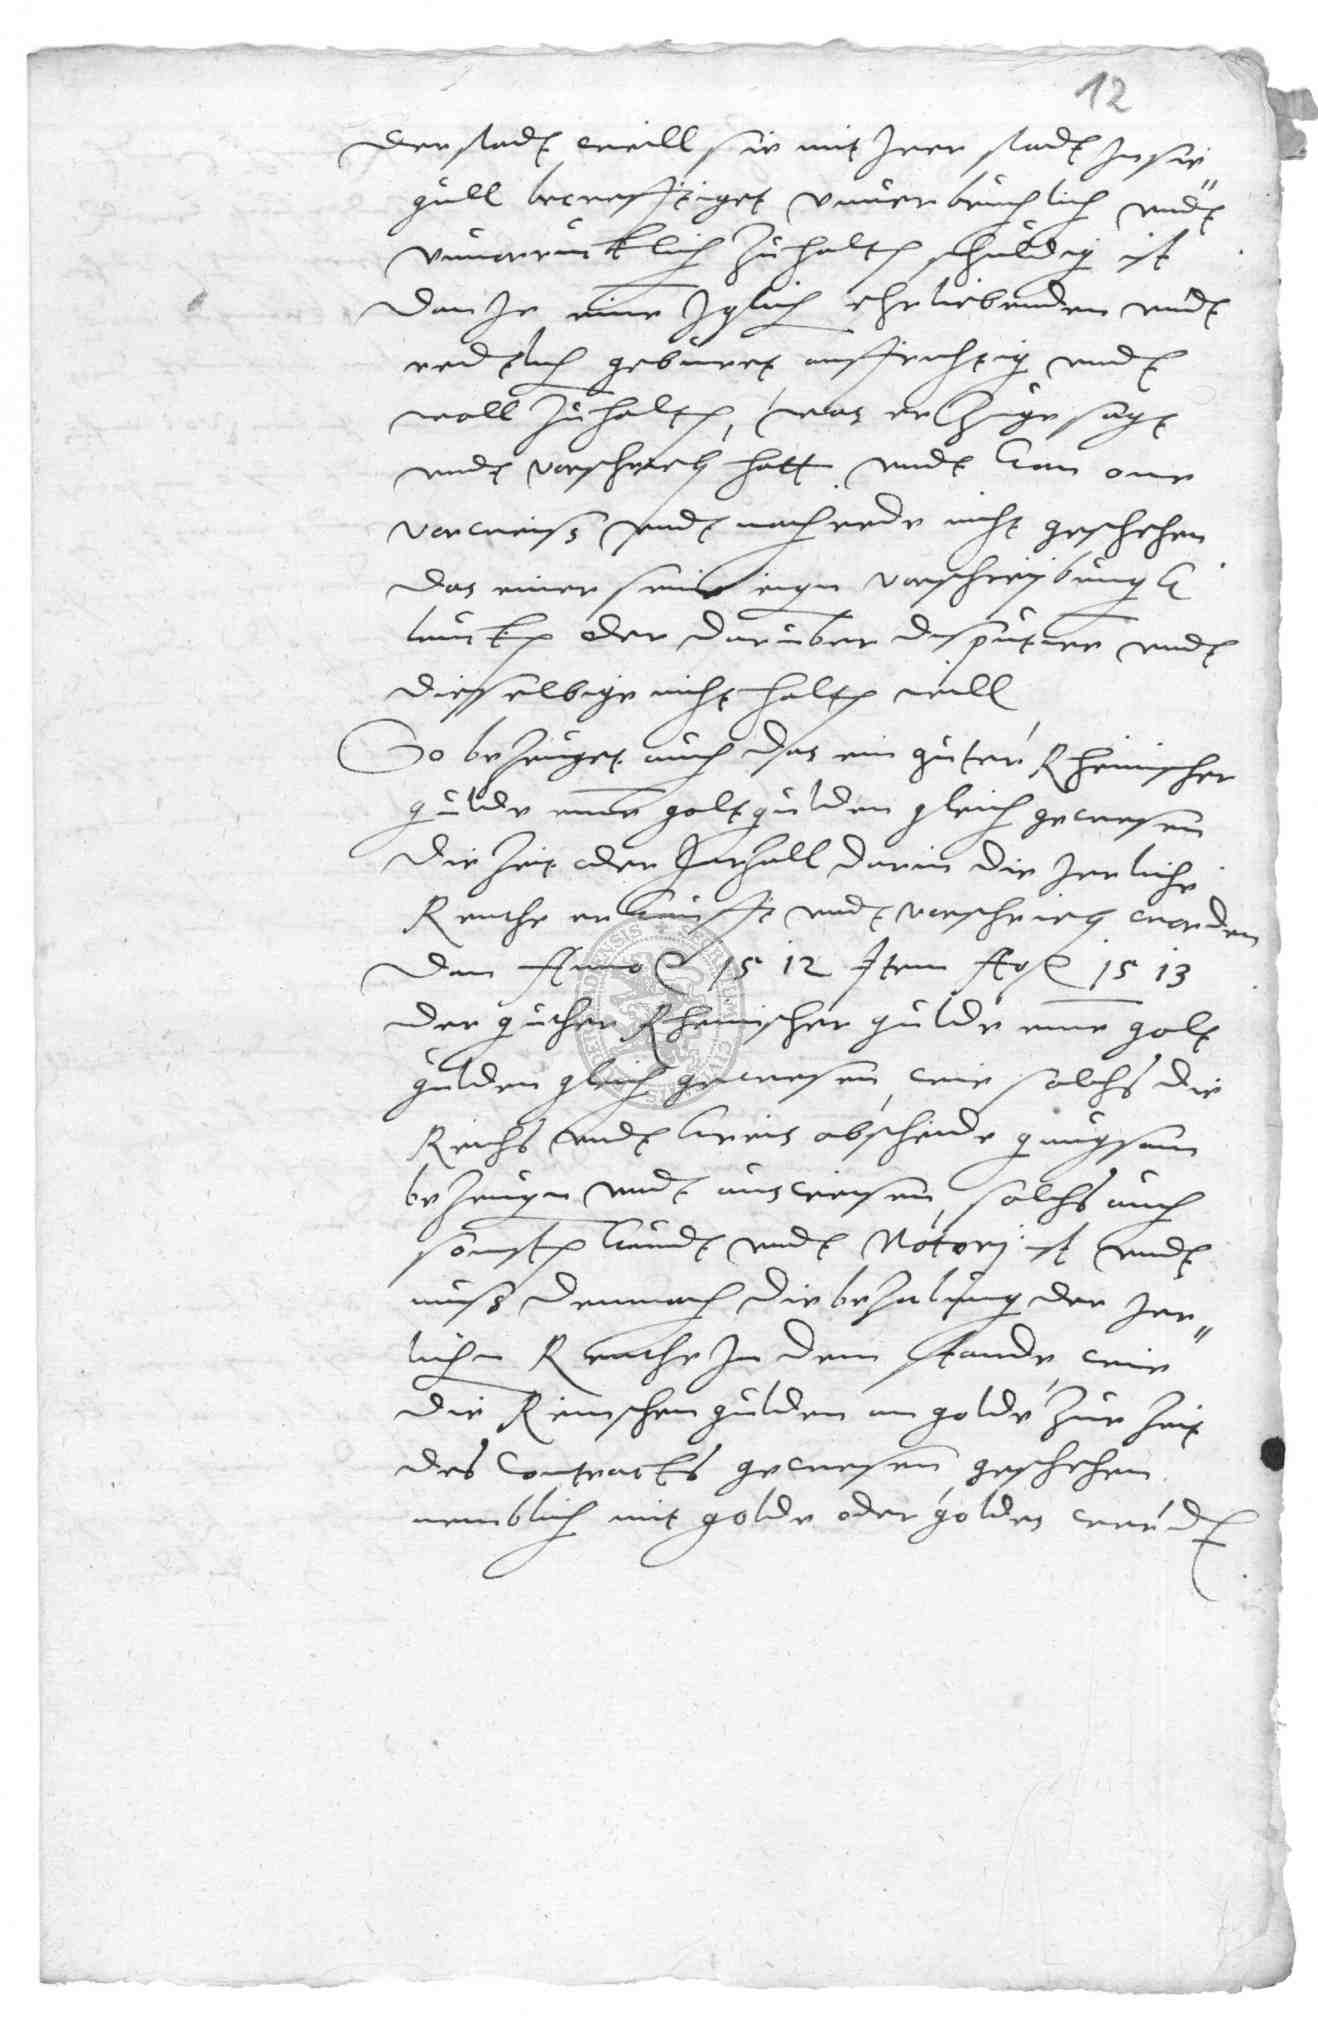 12
der stadt, weill sie mit Irer stadt Insie„
gull becrefftiget vnuerbruchlich vndt
vnuorrucklich zuhalten schuldig ist
dan Je eine Iglich ehrliebenden vndt
redtlich geburet auffrichtig vndt
woll zuhalten, was er zugesagt
vndt vorschrieb hatt vndt kan one
vorweiss vndt nachrede nicht geschehen
das einer seine eigen vorschreibung
oder daruber disputire vndt
dieselbige nicht halten will
So bezeuget auch das ein guter Rheinischer
gulde eine goltgulden gleich gewesen
die Zeit oder Jarzall darin die Jerliche
Renthe erkaufft vndt vorschrieb worden
dan Anno 1512 Item Ao 1513
der guther Rheinischer gulde eine golt
gulden gleich gewesen, wie solchs die
Reichs vndt kreis abscheide gnugsam
bezeugen vndt ausweisen, solchs auch
sonsten kundt vndt Notorj ist vndt
muss demnach die bezalung der Jer„
lichen Renthe In dem stande, wie
die Rinischen gulden an golde zur Zeit
des Contracts gewesen geschehen
nemblich mit golde oder goldes werdt